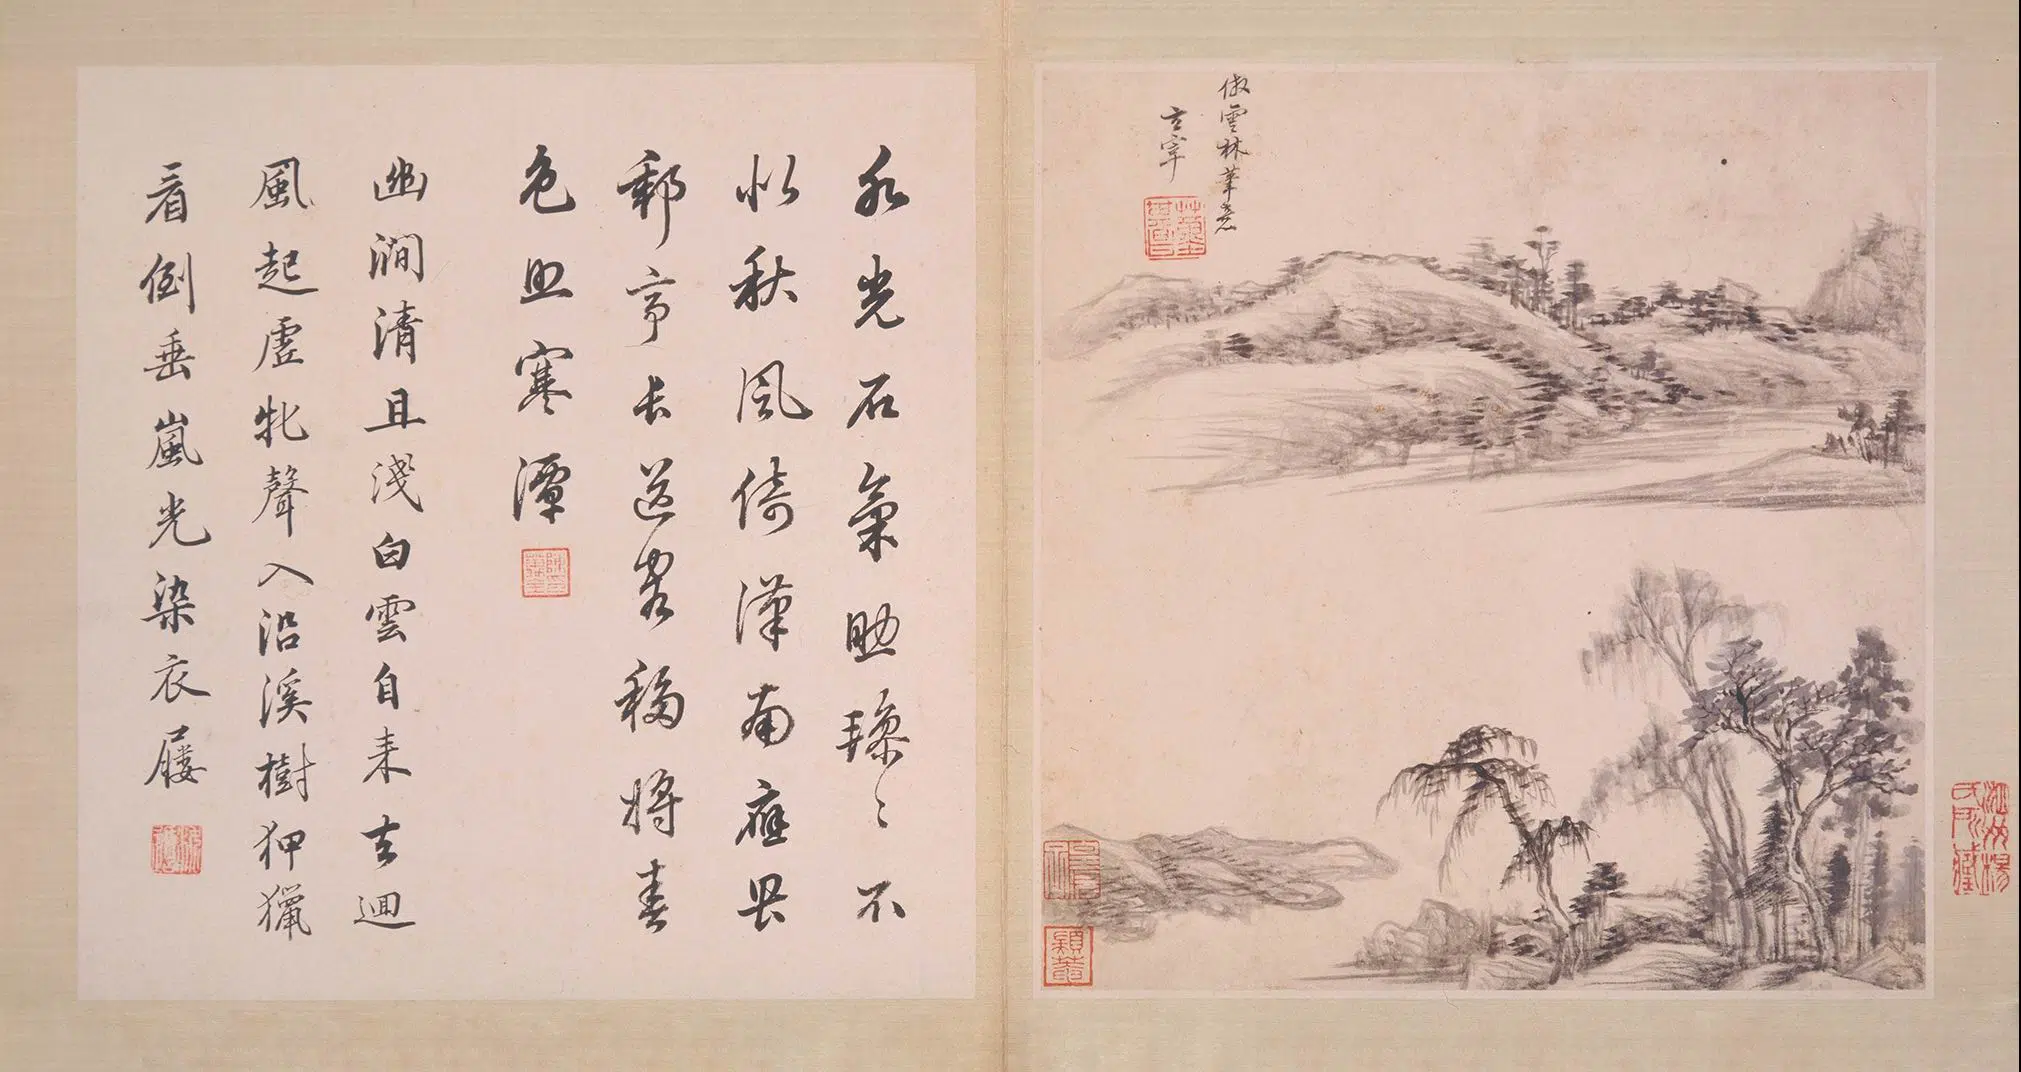 倣雲林筆意
玄宰
水光石氣助毿々不
似秋風倚漢南應畏
郵亭長送客移將春
色照寒潭
幽澗清且淺白雲自来去迴
風起虛牝聲入沿溪樹狎獵
看倒垂嵐光染衣屨